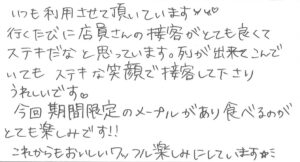 いつも利用させて頂いています♡♡
行くたびに店員さんの接客がとても良くて
ステキだなと思っています。列が出来てこんで
いても ステキな笑顔で接客して下さり
うれしいです。
今回 期間限定のメープルがあり食べるのが
とても楽しみです!!
これからもおいしいワッフル楽しみにしています☆